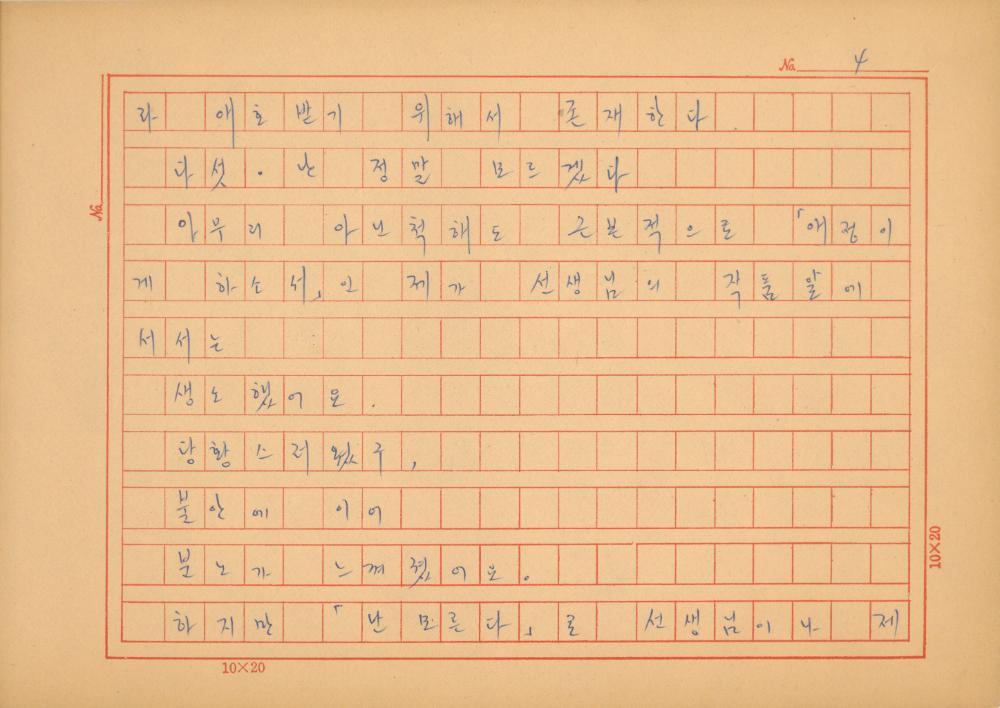 No. 4
라 애호 받기 위해서 존재한다
다섯. 난 정말 모르겠다
아무리 아닌척해도 근본적으로 「애정이
게 하소서」인 제가 선생님의 작품앞에
서서는
생소했어요.
당황스러웠구,
불안에 이어
분노가 느껴졌어요.
하지만 「난 모른다」로 선생님이나 제
No.
10×20
10×20